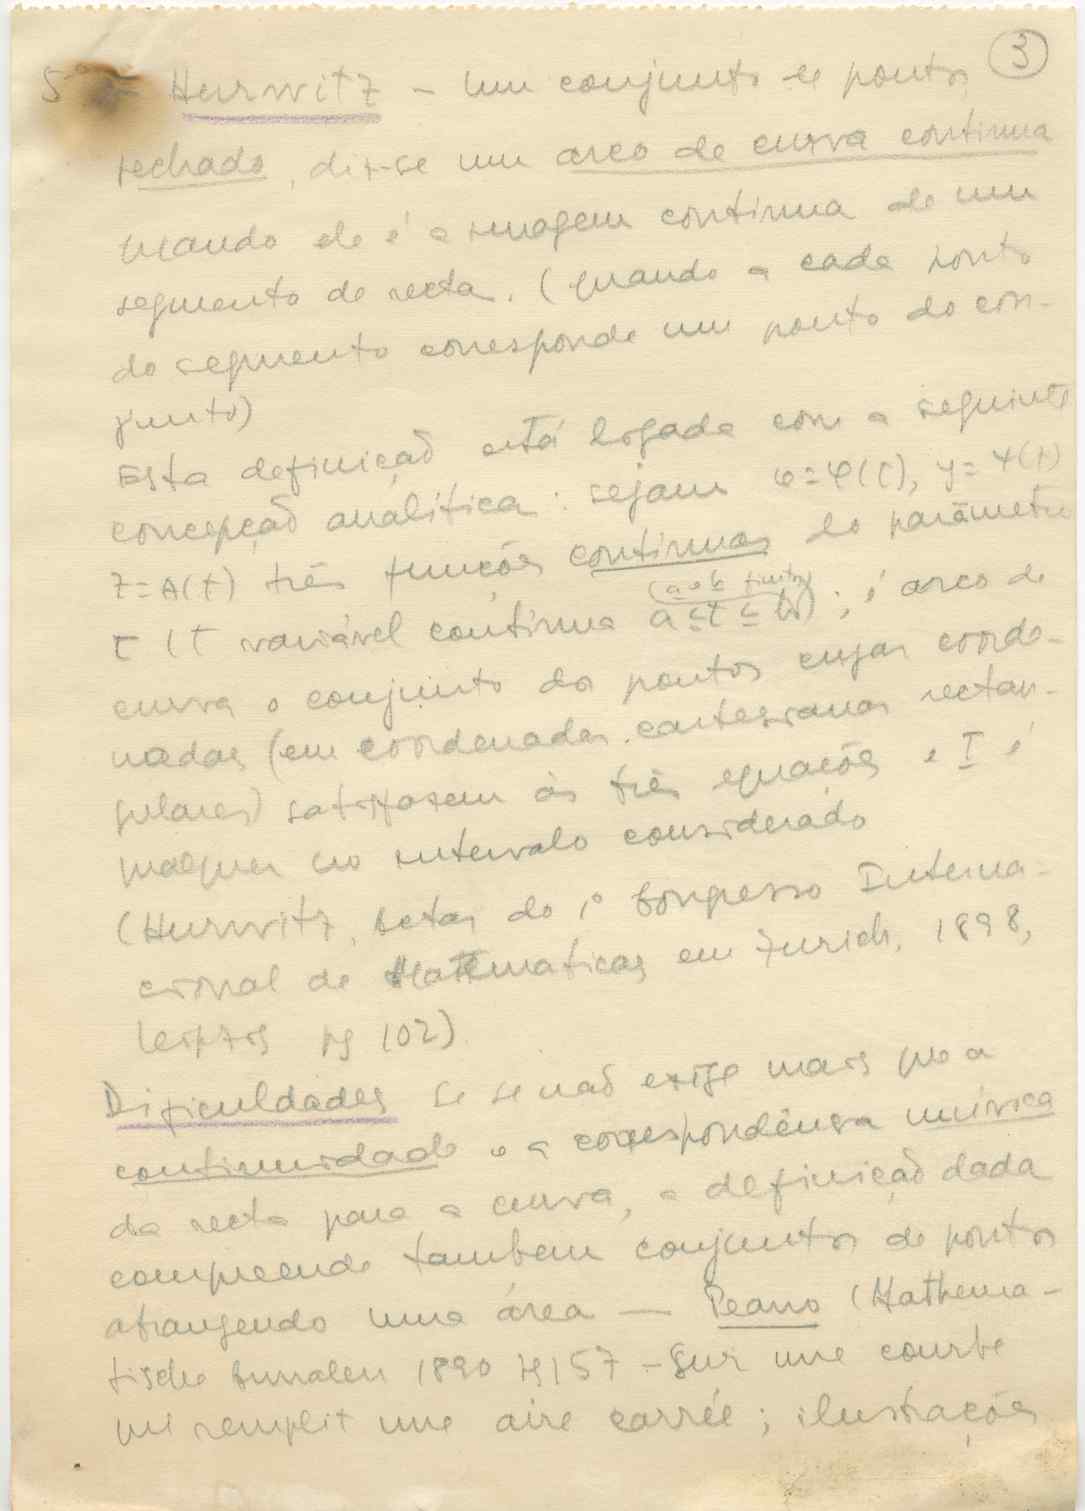 3
5º - Hurwitz - Um conjunto de pontos
fechado, diz-se um arco de curva contínua
quando ele é a imagem contínua de um
segmento de recta. (quando a cada ponto
do segmento corresponde um ponto do con-
junto)
Esta definição está ligada com a seguinte
concepção analítica: sejam x=φ(t), y=ψ(t)
z=A(t) três funções contínuas do parâmetro
(a e b finitos)
t (t variável contínua a≤t≤b); é arco de
curva o conjunto dos pontos cujas coorde-
nadas (em coordenadas cartesianas rectan-
gulares) satisfazem às três equações e t é
qualquer no intervalo considerado
(Hurwitz, Actas do 1º Congresso Interna-
cional de Matematicas em Zurich, 1898,
Leipzig pg 102)
Dificuldades Se se não exige mais que a
continuidade e a correspondência unívoca
da recta para a curva, a definição dada
compreende tambem conjuntos de pontos
abrangendo uma área — Peano (Mathema-
tische Annalen 1890 pg 157 - Sur une courbe
qui remplit une aire carrée; ilustrações